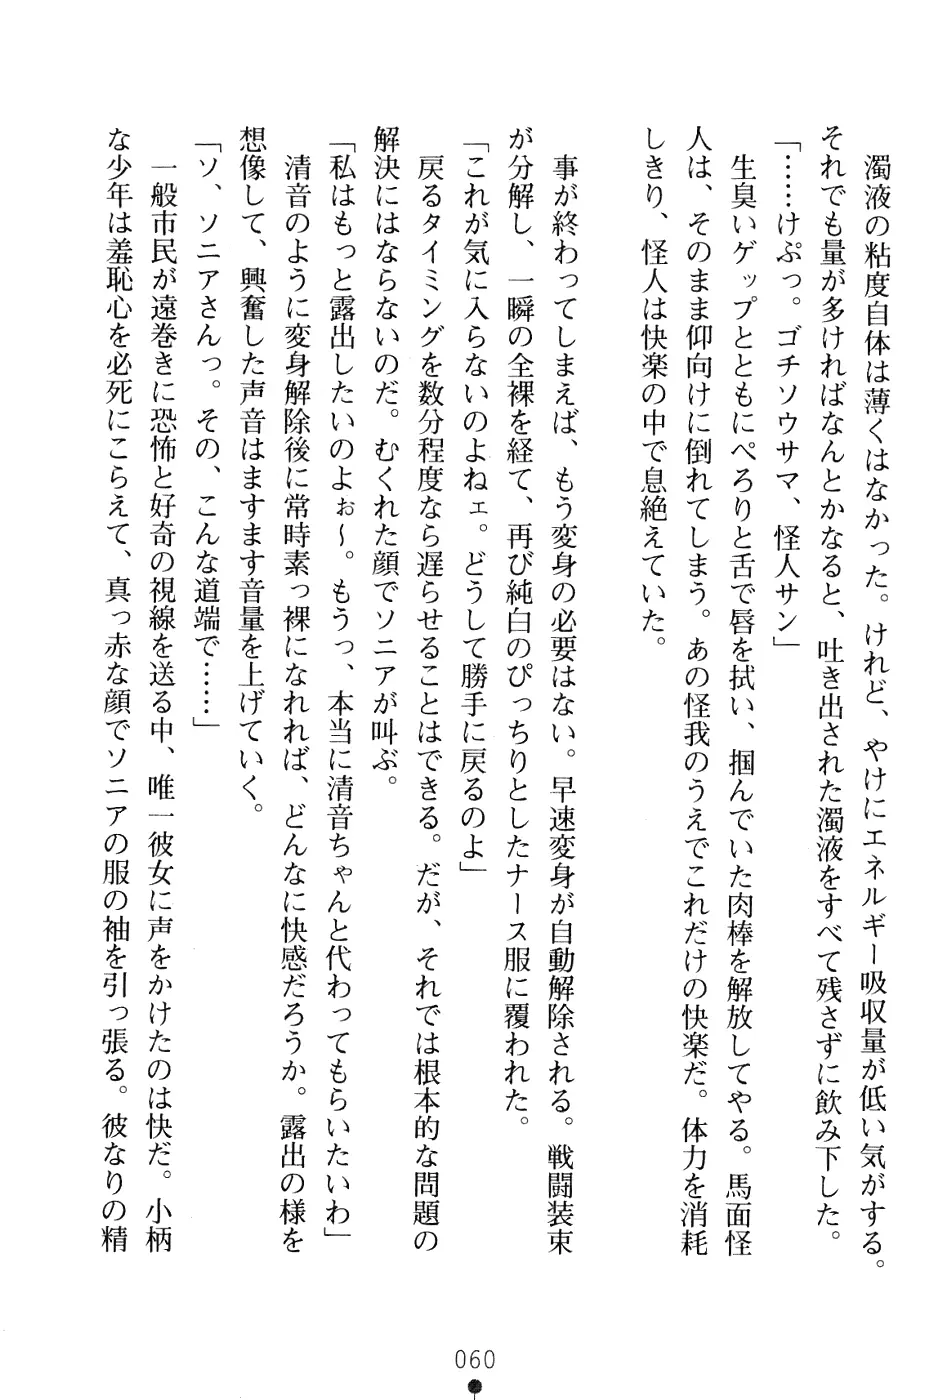 濁液の粘度自体は薄くはなかった。けれど、やけにエネルギー吸収量が低い気がする。
それでも量が多ければなんとかなると、吐き出された濁液をすべて残さずに飲み下した。
「……けぷっ。ゴチソウサマ、怪人サン」
生臭いゲップとともにぺろりと舌で唇を拭い、掴んでいた肉棒を解放してやる。馬面怪
人は、そのまま仰向けに倒れてしまう。あの怪我のうえでこれだけの快楽だ。体力を消耗
しきり、怪人は快楽の中で息絶えていた。
事が終わってしまえば、もう変身の必要はない。早速変身が自動解除される。戦闘装束
が分解し、一瞬の全裸を経て、再び純白のぴっちりとしたナース服に覆われた。
「これが気に入らないのよねェ。どうして勝手に戻るのよ」
戻るタイミングを数分程度なら遅らせることはできる。だが、それでは根本的な問題の
解決にはならないのだ。むくれた顔でソニアが叫ぶ。
「私はもっと露出したいのよぉ～。もうっ、本当に清音ちゃんと代わってもらいたいわ」
清音のように変身解除後に常時素っ裸になれれば、どんなに快感だろうか。露出の様を
想像して、興奮した声音はますます音量を上げていく。
「ソ、ソニアさんっ。その、こんな道端で……」
一般市民が遠巻きに恐怖と好奇の視線を送る中、唯一彼女に声をかけたのは快だ。小柄
な少年は羞恥心を必死にこらえて、真っ赤な顔でソニアの服の袖を引っ張る。彼なりの精
060